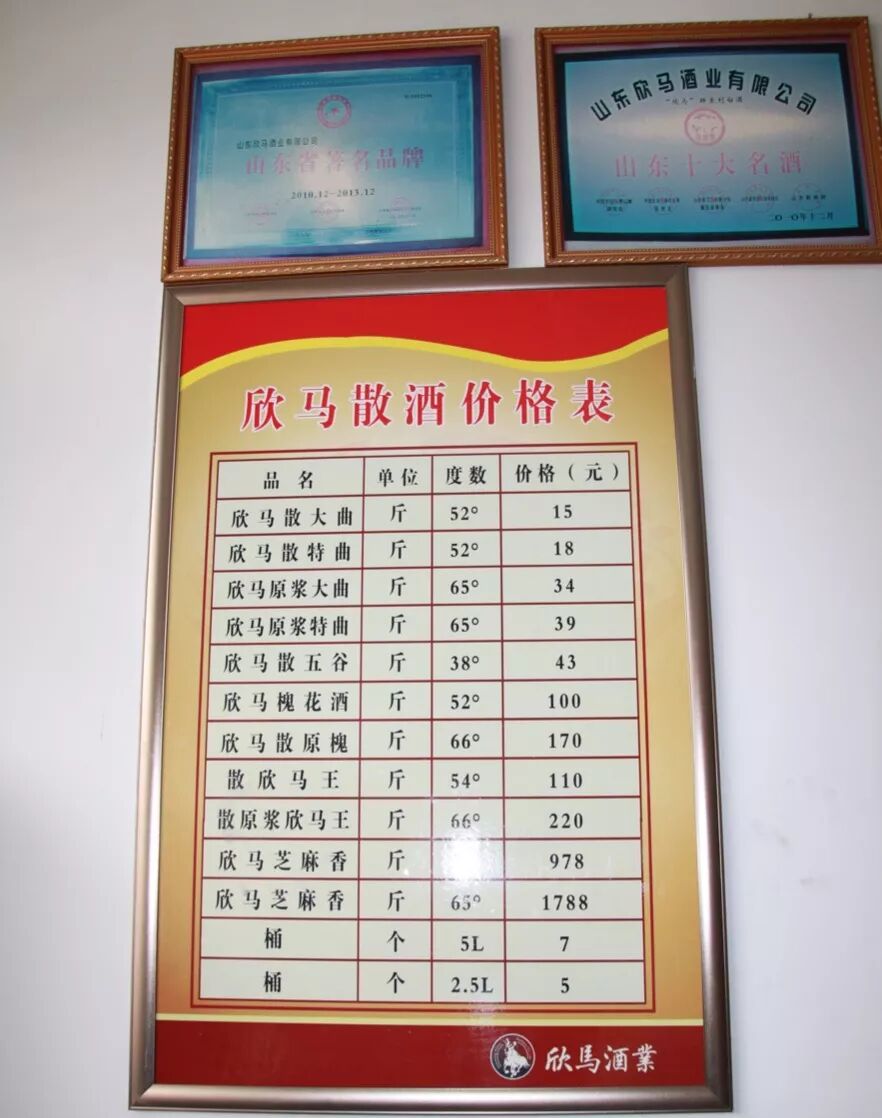 山东欣马酒业有限公司
山东省著名品牌
2010.12-2013.12
山东欣马酒业有限公司
山东十大名酒
二〇一〇年十二月
欣马散酒价格表
品名 单位 度数 价格（元）
欣马散大曲 斤 52° 15
欣马散特曲 斤 52° 18
欣马原浆大曲 斤 65° 34
欣马原浆特曲 斤 65° 39
欣马散五谷 斤 38° 43
欣马槐花酒 斤 52° 100
欣马散原槐 斤 66° 170
散欣马王 斤 54° 110
散原浆欣马王 斤 66° 220
欣马芝麻香 斤 978
欣马芝麻香 斤 65° 1788
桶 个 5L 7
桶 个 2.5L 5
欣馬酒業